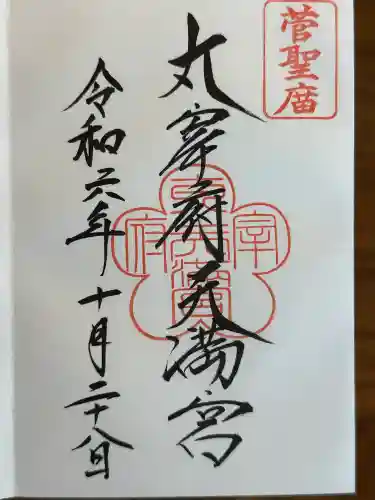 菅聖庿
太宰府天満宮
令和六年十月二十八日